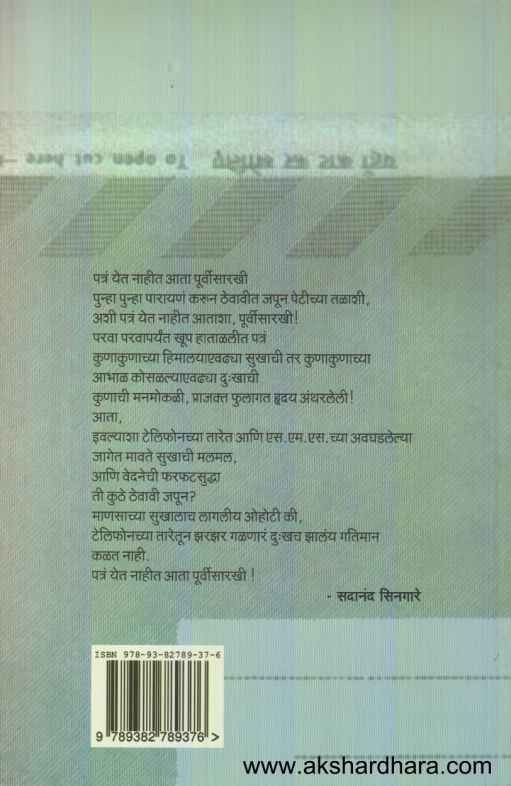 To open cut here
पत्रं येत नाहीत आता पूर्वीसारखी
पुन्हा पुन्हा पारायणं करुन ठेवावीत जपून पेटीच्या तळाशी,
अशी पत्रं येत नाहीत आताशा, पूर्वीसारखी!
परवा परवापर्यंत खूप हाताळलीत पत्रं
कुणाकुणाच्या हिमालयाएवढ्या सुखाची तर कुणाकुणाच्या
आभाळ कोसळल्याएवढ्या दुःखाची
कुणाची मनमोकळी, प्राजक्त फुलागत हृदय अंथरलेली!
आता,
इवल्याशा टेलिफोनच्या तारेत आणि एस.एम.एस.च्या अवघडलेल्या
जागेत मावते सुखाची मलमल,
आणि वेदनेची फरफटसुद्धा
ती कुठे ठेवावी जपून?
माणसाच्या सुखालाच लागलीय ओहोटी की,
टेलिफोनच्या तारेतून झरझर गळणारं दुःखच झालंय गतिमान
कळत नाही.
पत्रं येत नाहीत आता पूर्वीसारखी !
- सदानंद सिनगारे
ISBN 978-93-82789-37-6
9 789382 789376 >
www.akshardhara.com